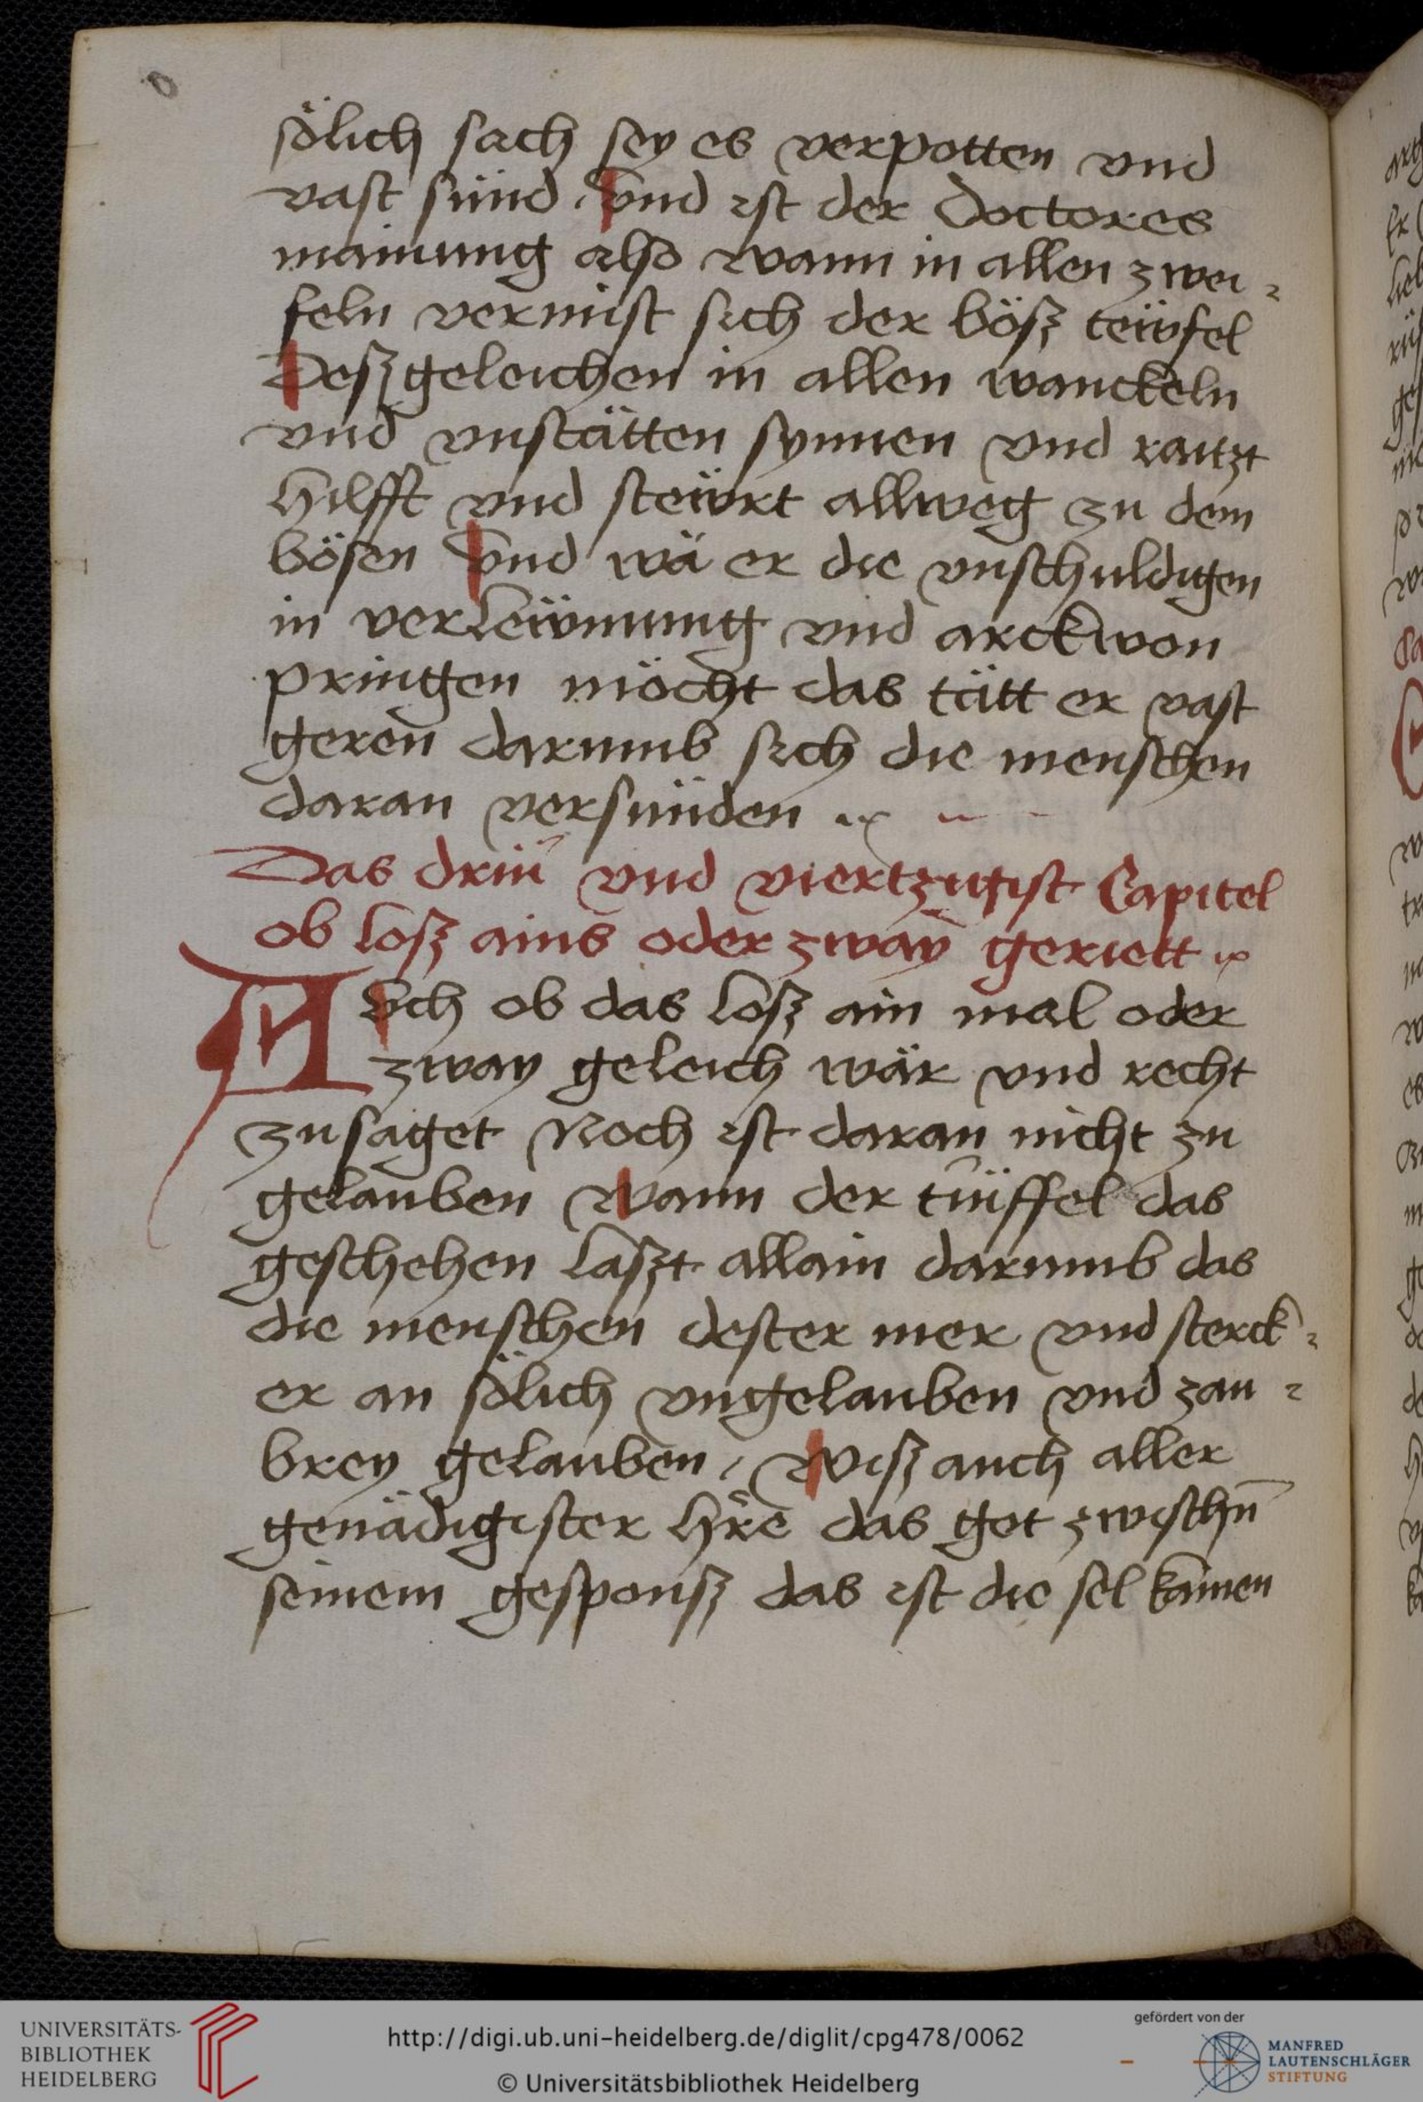 sölich sach sey es verpotten vnd
vast sünd . Vnd ist der Doctores
mainung also wann in allen zwei⸗
feln vermist sich der bösz teẅfel
Deszgeleichen in allen wanckeln
vnd vnstätten synnen vnd raitzt
hilfft vnd steẅrt allweg zu dem
bösen Vnd wä er die vnschuldigen
in verleẅmung vnd arckwon
pringen möcht das tätt er vast
geren darumb sich die menschen
daran versünden
Das driü vnd viertzigist Capitel
ob losz ains oder zway geriett
AVch ob das losz ain mal oder
zway geleich wär vnd recht
zusaget Noch ist daran nicht zu
gelauben Wann der tüiffel das
geschehen laszt allain darumb das
die menschen dester mer vnd sterck⸗
er an sölich vngelauben vnd zau⸗
brey gelauben , Wisz auch aller
genädigister h're das got zwischn̄
seinem gesponsz das ist die sel kainen
UNIVERSITÄTS-
BIBLIOTHEK
HEIDELBERG
http://digi.ub.uni-heidelberg.de/diglit/cpg478/0062
© Universitätsbibliothek Heidelberg
gefördert von der
MANFRED
LAUTENSCHLÄGER
STIFTUNG